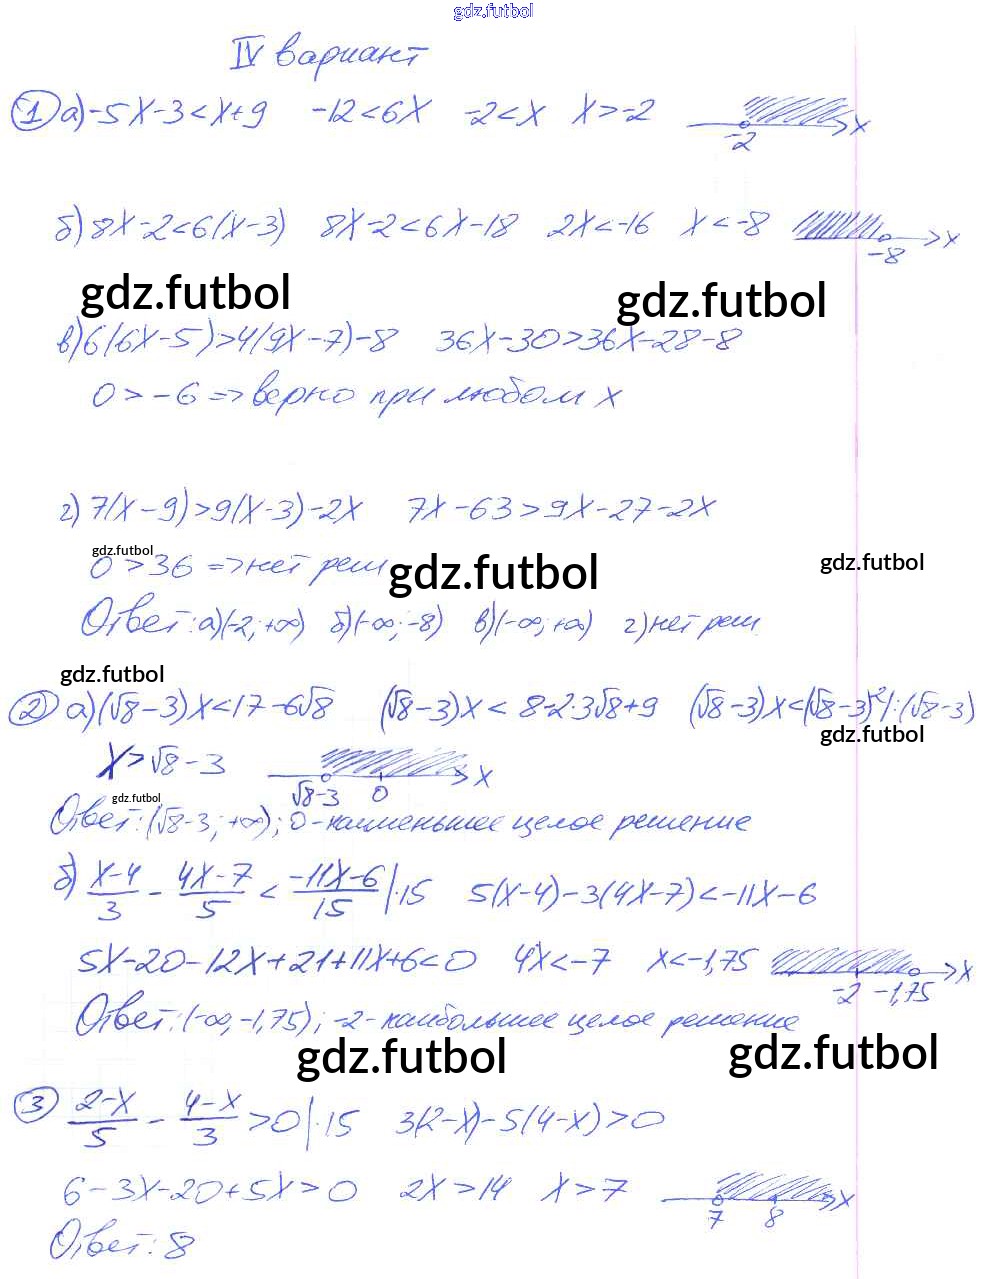 gdz.futbol
IV вариант
1 а) -5x-3<x+9 -12<6x -2<x x>-2
-2 x
б) 8x-2<6(x-3) 8x-2<6x-18 2x<-16 x<-8
-8 x
gdz.futbol gdz.futbol
в) 6(6x-5)>4(9x-7)-8 36x-30>36x-28-8
0>-6 => верно при любом x
г) 7(x-9)>9(x-3)-2x 7x-63>9x-27-2x
gdz.futbol
0>36 => нет реш gdz.futbol gdz.futbol
Ответ: а)(-2;+∞) б)(-∞;-8) в)(-∞;+∞) г) нет реш.
gdz.futbol
2 а) (√8-3)x<17-6√8 (√8-3)x<8-2·3√8+9 (√8-3)x<(√8-3)²|:(√8-3)
gdz.futbol
x>√8-3 √8-3 0 x
gdz.futbol
Ответ: (√8-3;+∞); 0-наименьшее целое решение
б) (x-4)/3 - (4x-7)/5 < (-11x-6)/15 |·15 5(x-4)-3(4x-7)<-11x-6
5x-20-12x+21+11x+6<0 4x<-7 x<-1,75 -2 -1,75 x
Ответ: (-∞;-1,75); -2-наибольшее целое решение
gdz.futbol gdz.futbol
3 (2-x)/5 - (4-x)/3 >0|·15 3(2-x)-5(4-x)>0
6-3x-20+5x>0 2x>14 x>7 7 8 x
Ответ: 8